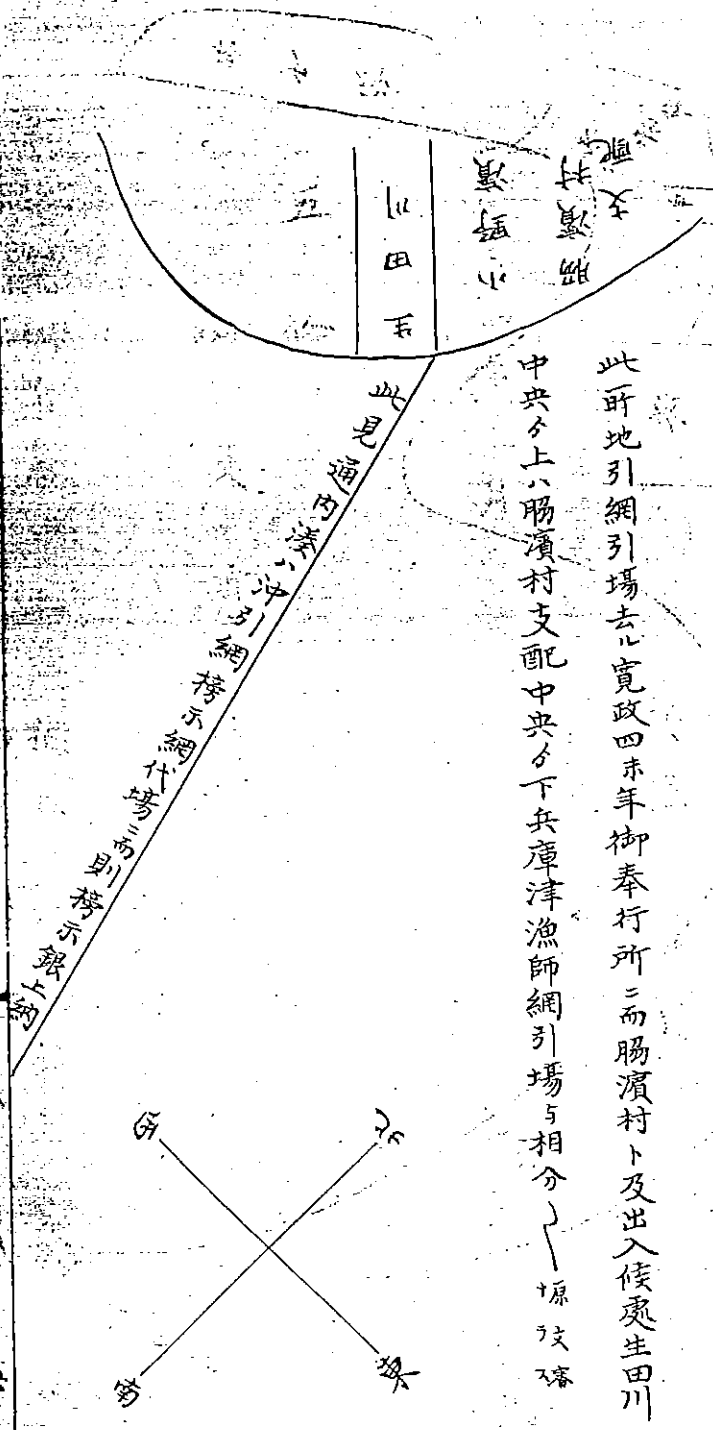 脇濱村
支配
小野濱
生田川
此所地引網引場去ル寛政四未年御奉行所ニ而脇濱村ト及出入候處生田川
中央ゟ上ハ脇濱村支配中央ゟ下兵庫津漁師網引場与相分
此見通内湊ハ沖引網榜示網代場ニ而則榜示銀上納
北
西
東
南